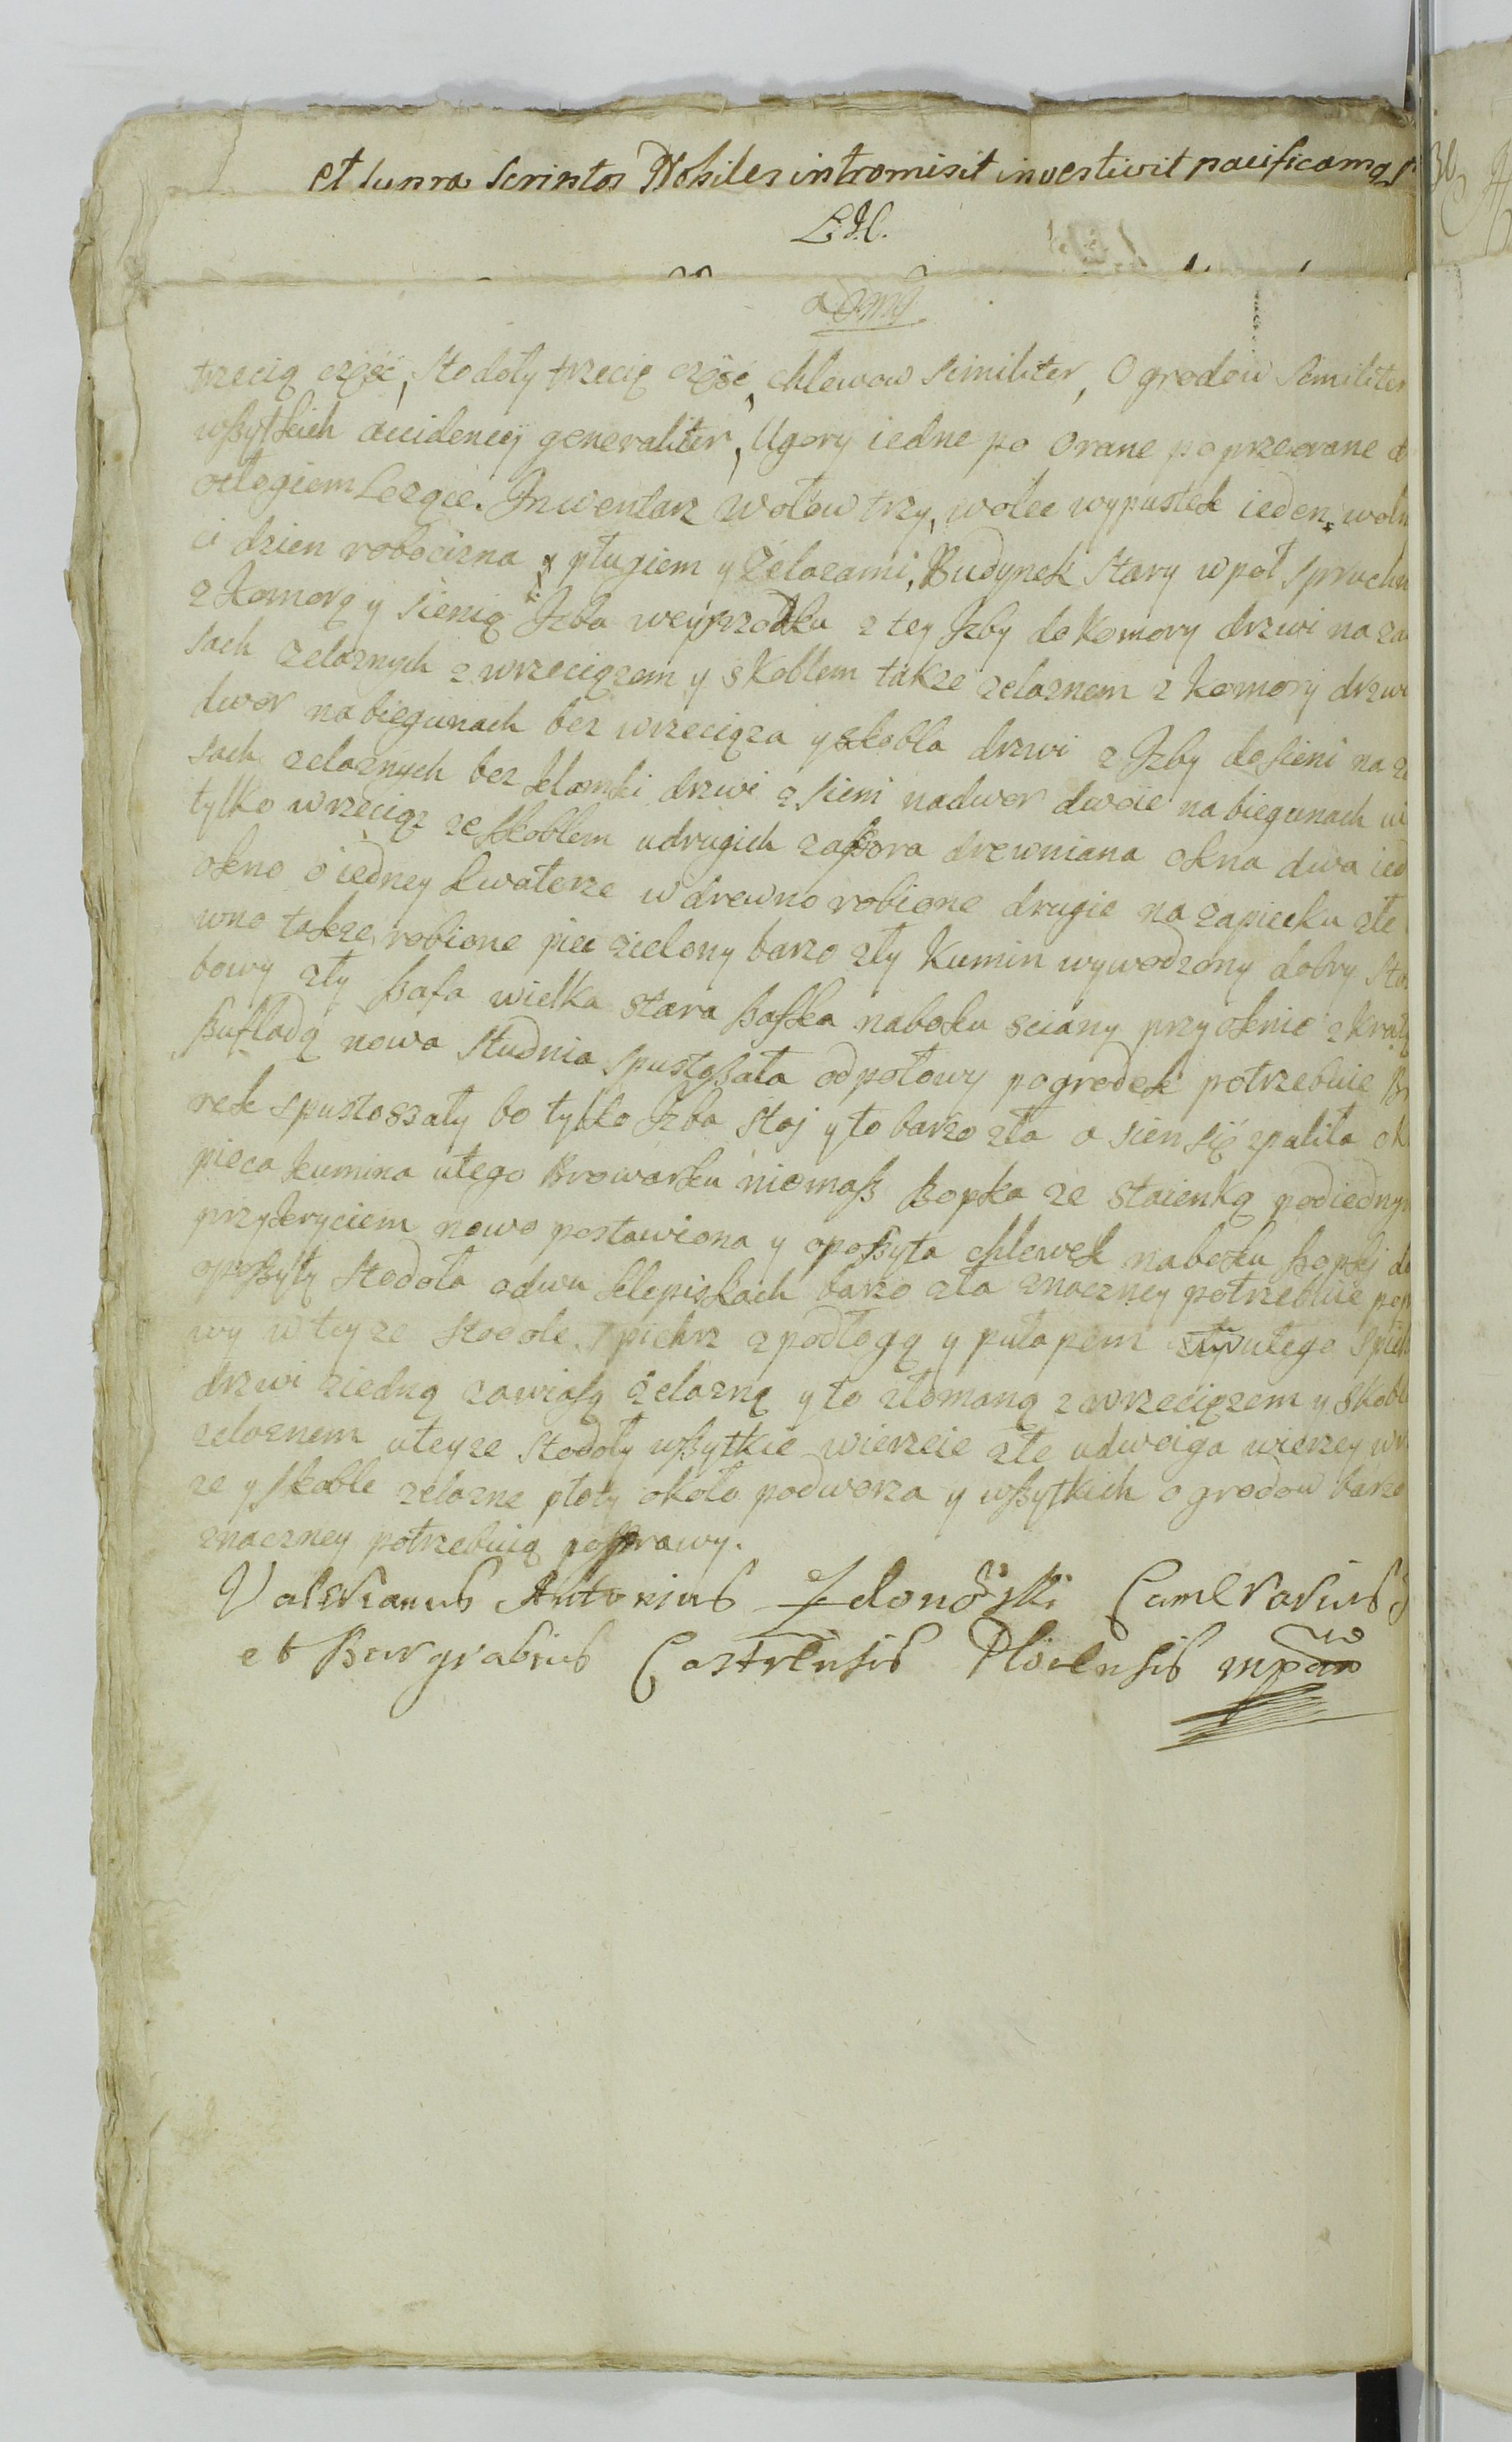 et supra scriptos Nobiles intromisit investivit pacificamq
trzecią część, Stodoły trzecią część, chlewow similiter, Ogrodow similiter
wßytkich accidencij generaliter, Ugory iedne po orane poprzeorane
odłogiem Lezące. Jnwentarz wołow trzy, wolec wypustek ieden, woln
ci dzien robocizna z pługiem y Zelazami, Budynek stary wpoł spruchn
z Komorą y sienią Jzba weyprzodku z tey Jzby do Komory drzwi na za
sach zelaznych z wrzeciązem y skoblem takze zelaznem z Komory drzwi
dwor nabiegunach bez wrzeciąza y skobla drzwi z Jzby do sieni na z
sach zelaznych bez klamki drzwi z sieni nadwor dwoie na biegunach u
tylko wrzeciąz ze skoblem udrugich zapora drewniana okna dwa ied
okno o iedney kwaterze w drewno robione drugie na zapiecku złe
wno takze robione piec zielony barzo zły Kumin wywodzony dobry Sto
bowy zły ßafa wielka stara ßafka naboku sciany przy oknie z kratą
ßufladą nowa studnia spustoßała odpołowy pogrodek potrzebuie Br
rek spustoszały bo tylko Jzba stoj y to barzo zła a sien się spaliła ok
pieca kumina utego Browarku niemaß ßopka ze staienką podiednym
przykryciem nowo postawiona y opoßyta chlewek naboku ßopkj do
opoßyty Stodoła odwu klepiskach barzo zła znaczney potrzebuie pop
wy w teyze stodole spichrz z podłogą y pułapem utego spich
drzwi ziedną zawiasą zelazną y to złomaną z wrzeciązem y skobl
zelaznem uteyze stodoły wßytkie wierzeie złe udwoiga wierzey wr
ze y skoble zelazne płoty około podworza y wßytkich ogrodow barzo
znaczney potrzebuią poprawy.
Valerianus Antonius Zdonoski Camerarius
et Burgrabius Castrensis Plocensis mpp